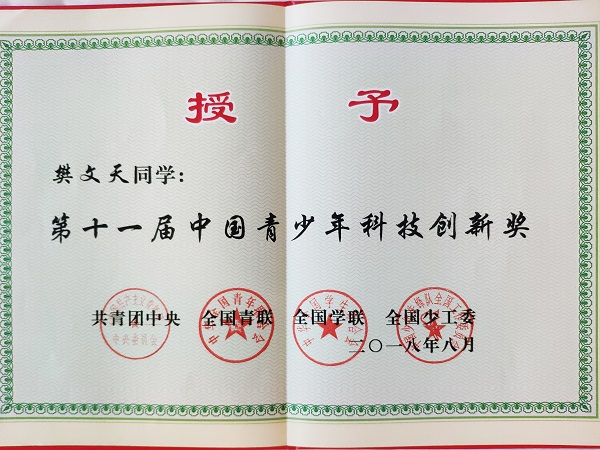 授 予
樊文天同学：
第十一届中国青少年科技创新奖
共青团中央 全国青联 全国学联 全国少工委
二〇一八年八月